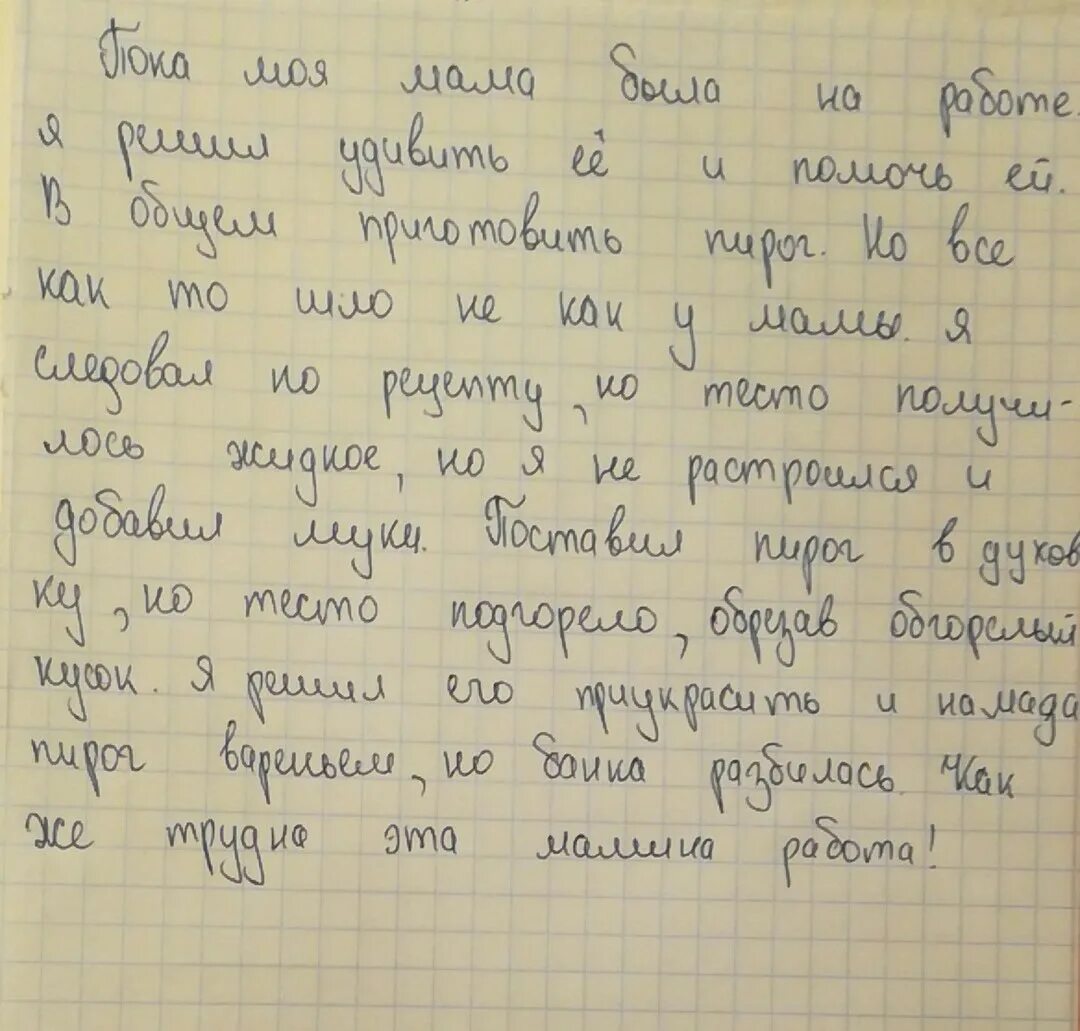 Пока моя мама была на работе.
я решил удивить её и помочь ей.
В общем приготовить пирог. Но все
как то шло не как у мамы. я
следовал по рецепту, но тесто получи-
лось жидкое, но я не растроился и
добавил муки. Поставил пирог в духов
ку, но тесто подгорело, обрезав обгорелый
кусок. Я решил его приукрасить и намада
пирог вареньем, но банка разбилась. Как
же трудна эта мамина работа!